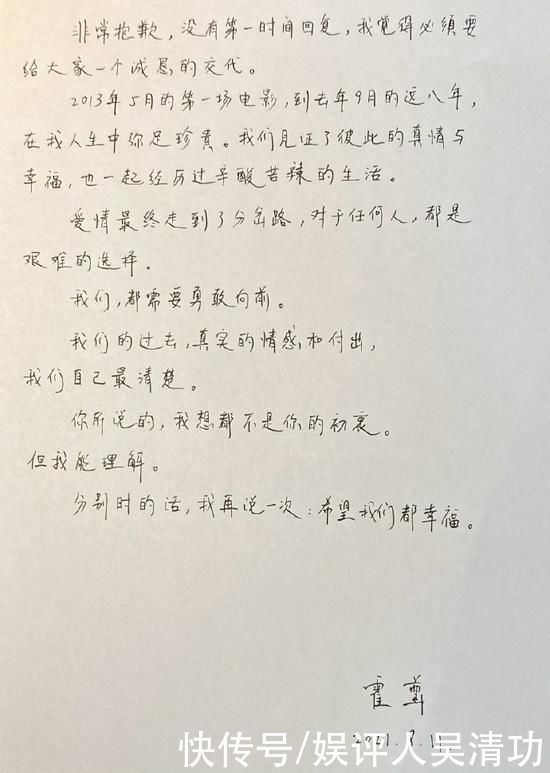 非常抱歉，没有第一时间回复，我觉得必须要
给大家一个诚恳的交代。
2013年5月的第一场电影，到去年9月的这八年，
在我人生中弥足珍贵。我们见证了彼此的真情与
幸福，也一起经历过辛酸苦辣的生活。
爱情最终走到了分岔路，对于任何人，都是
艰难的选择。
我们，都需要勇敢向前。
我们的过去，真实的情感和付出，
我们自己最清楚。
你所说的，我想都不是你的初衷。
但我能理解。
分别时的话，我再说一次：希望我们都幸福。
霍尊
2021.8.11.
快传号/娱评人吴清功